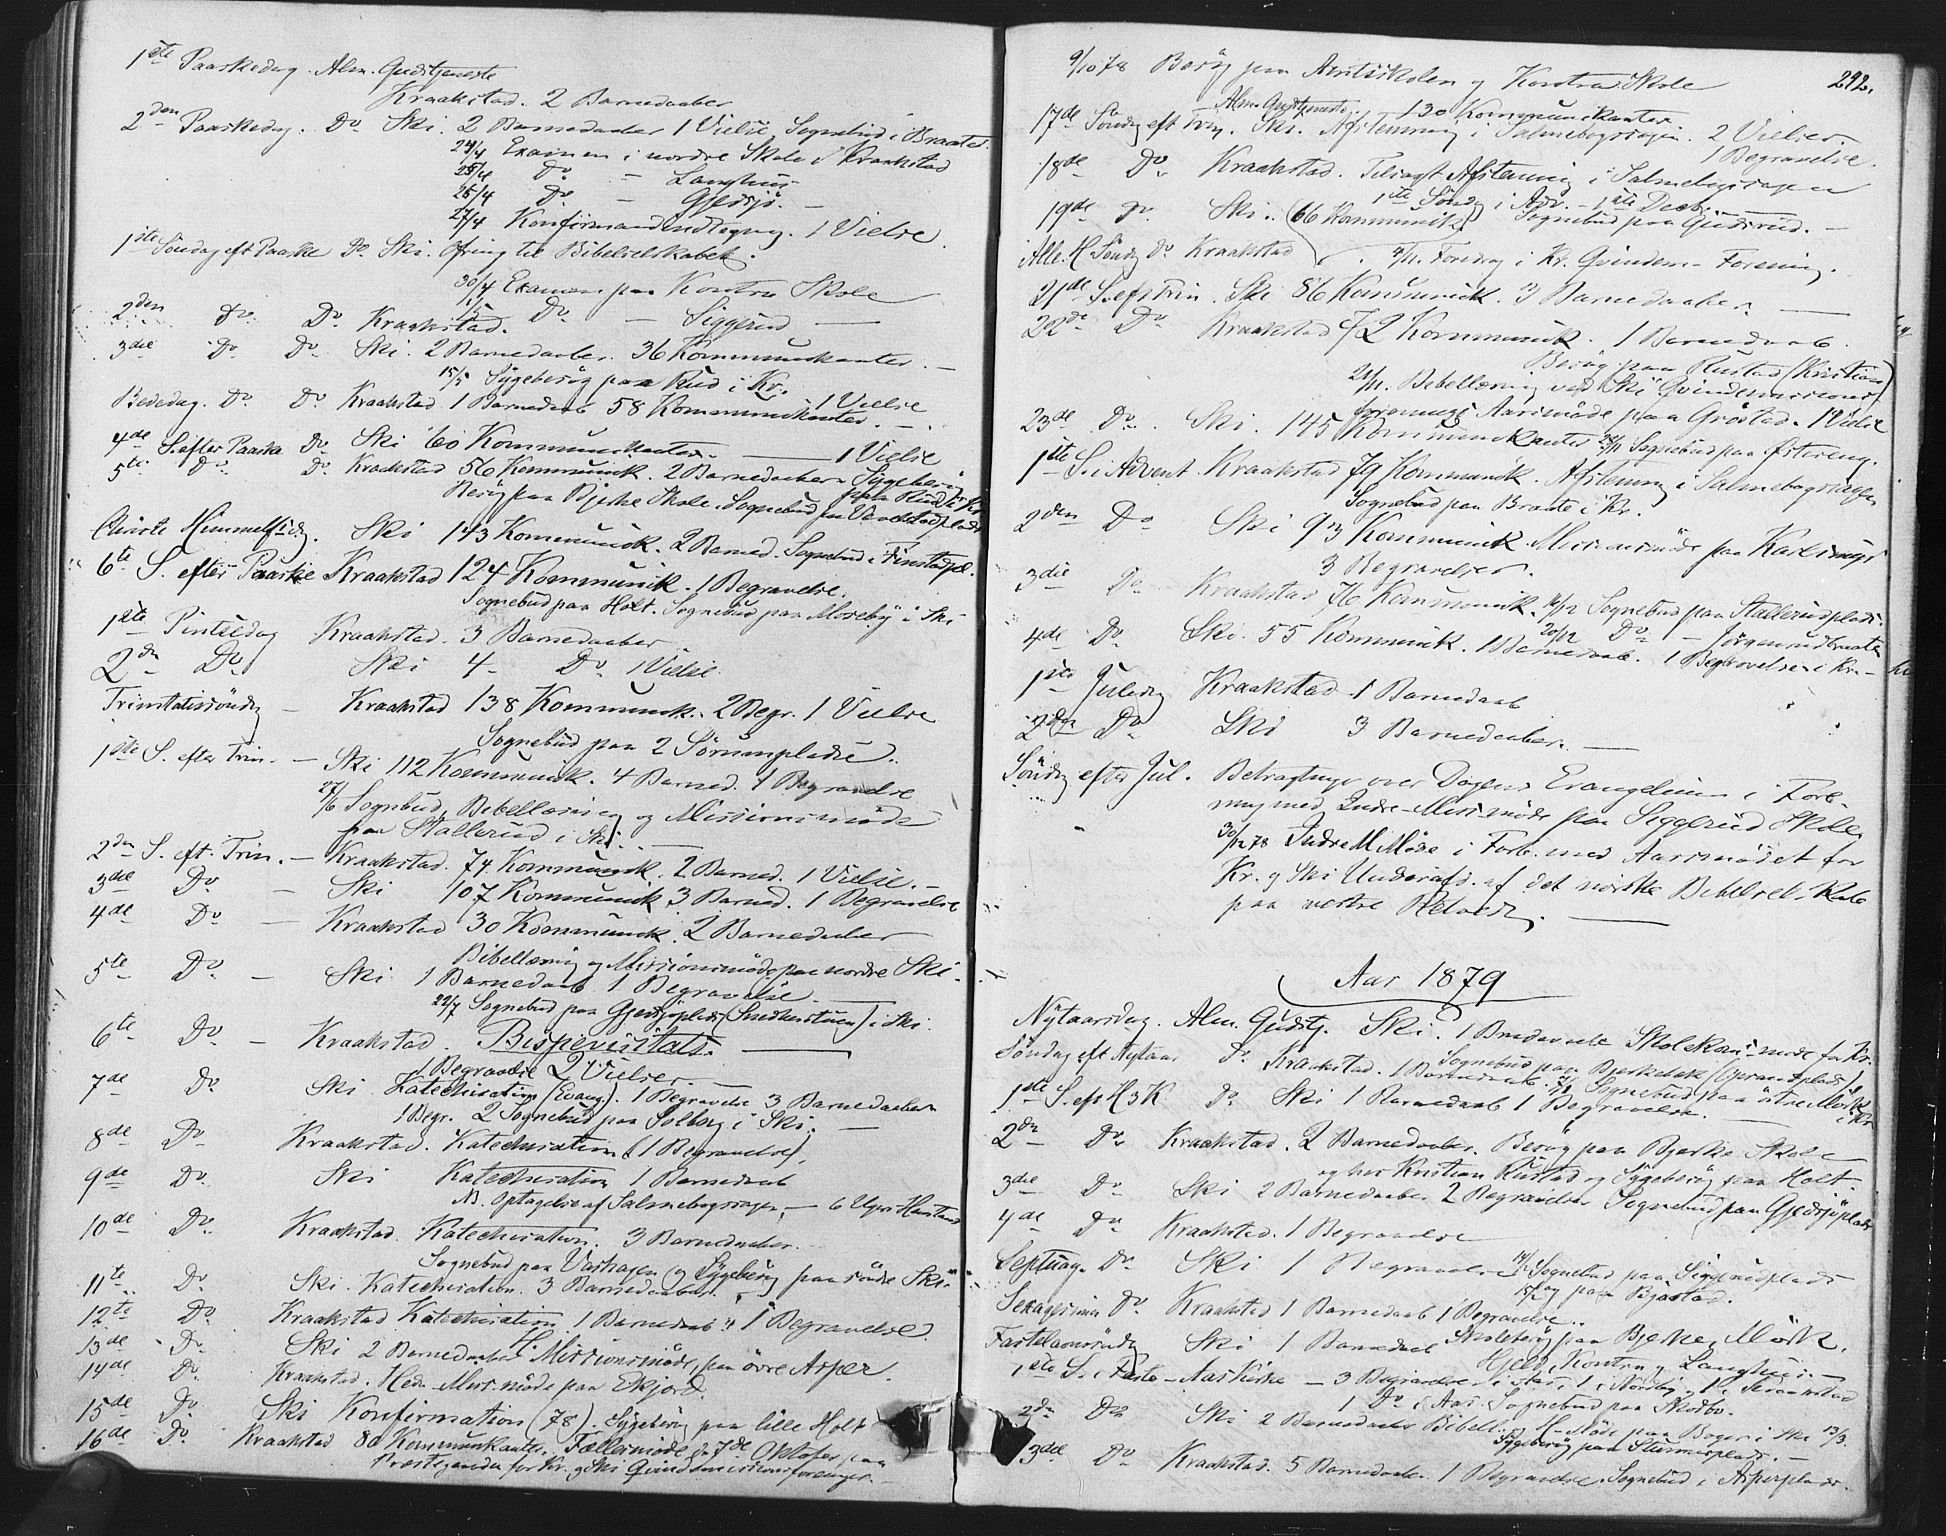 1ste Paaskedag. Alm. Gudstjeneste
Kraakstad. 2 Barnedaaber
2den Paaskedag. Do Ski. 2 Barnedaaber 1 Vielse, Sognebud i Braaten
24/4 Examen i nordre Skole i Kraakstad
25/4 Do – Langhus
26/4 Do – Gjedsjø. –
27/4 Konfirmandindtagning. 1 Vielse.
1ste Søndag eft Paaske Do Ski. Ofring til Bibelselskabet.
30/4 Examen paa Kontra Skole
1/5 Do – Siggerud –
2den Do Do Kraakstad.
3die Do Do Ski. 2 Barnedaaber. 36 Kommunikanter. –
15/5 Sygebesøg paa Rud i Kr. 1 Vielse
Bededag. Do Do Kraakstad 1 Barnedaab 58 Kommunikanter. –
4de S. efter Paaske Do Ski 60 Kommunikanter. – 1 Vielse
5te Do Do Kraakstad 56 Kommunik. 2 Barnedaaber Sygebesøg paa Rud i Kr.
Besøg paa Bjerke Skole. Sognebud paa Vevelstadplads
Christi Himmelfdg. Ski 143 Kommunik. 2 Barned. Sognebud i Finstadpl.
6te S. efter Paaske Kraakstad 124 Kommunik. 1 Begravelse.
Sognebud paa Holt. Sognebud paa Moseby i Ski
1ste Pintsedag Kraakstad. 3 Barnedaaber
2den Do Ski 4 – Do 1 Vielse.
Trinitatissøndag – Kraakstad 138 Kommunik. 2 Begr. 1 Vielse
Sognebud paa 2 Sørumpladse.
1ste S. efter Trin. – Ski 112 Kommunik. 4 Barned. 1 Begravelse
27/6 Sognebud, Bibellæsning og Missionsmøde
paa Stallerud i Ski. –
2den S. eft. Trin. – Kraakstad. 74 Kommunik. 2 Barned. 1 Vielse. –
3die Do – Ski 107 Kommunik 3 Barned. 1 Begravelse
4de Do – Kraakstad 30 Kommunik. 2 Barnedaaber
Bibellæsning og Missionsmøde paa nordre Ski.
5te Do – Ski 1 Barnedaab 1 Begravelse. –
22/7 Sognebud paa Gjedsjøplads (Smedkerstuen) i Ski.
6te Do – Kraakstad. Bispevisitats. –
1 Begravelse 2 Vielser. –
7de Do Ski Katechisation (Evang). 1 Begravelse 3 Barnedaaber
1 Begr. 2 Sognebud paa Solberg i Ski. –
8de Do Kraakstad. Katechisation (1 Begravelse).
9de Do Ski Katechisation 1 Barnedaab
NB. Optagelse af Salmebogssagen, – 6 Ugers Henstand
10de Do Kraakstad. Katechisation. 3 Barnedaaber.
Sognebud paa Vashagen og Sygebesøg paa søndre Ski.
11te Do Ski. Katechisation. 3 Barnedaaber. –
12te Do Kraakstad Katechisation 1 Barnedaab 1 Begravelse.
13de Do Ski 2 Barnedaaber H. Missionsmøde paa øvre Asper.
14de Do Kraakstad. Hedn Miss.møde paa Ekjord.
15de Do Ski Konfirmation (78). Sygebesøg paa lille Holt
16de Do Kraakstad 80 Kommunikanter. Fællesmøde d. 7de Oktober paa
Præstegaarden for Kr. og Ski Qvindemissionsforeninger. –
292.
9/10 78 Besøg paa Amtsskolen og Kontra Skole
Alm. Gudstjeneste. 130 Kommunikanter
17de Søndag eft Trin. Ski. Afstemning i Salmebogssagen. 2 Vielser.
1 Begravelse.
18de Do Kraakstad. Tillyst Afstemning i Salmebogssagen
1ste Søndag i Adv. – 1ste Decbr.
19de Do Ski. (66 Kommunik.) Sognebud paa Gudsrud. –
Alle H. Søndg Do Kraakstad Foredrag i Kr. Qvindem. Forening.
21de S. eft Trin. Ski 86 Kommunik. 3 Barnedaaber. –
22de Do Kraakstad 72 Kommunik. 1 Barnedaab.
Besøg paa Rustad (Kristian)
21/11. Bibellæsning ved Ski Qvindemissions
forenings Aarsmøde paa Grøstad. 1 Vielse
23de Do Ski. 145 Kommunikanter Sognebud paa Østereng.
1ste S. i Advent. Kraakstad 79 Kommunik. Afstemning i Salmebogssagen
Sognebud paa Braate i Kr.
2den Do Ski 93 Kommunik. Missionsmøde paa Karlsrud
3 Begravelser.
3die Do Kraakstad 76 Kommunik. 16/12 Sognebud paa Stallerudplads.
20/12 Do – Jørgenrudbraaten
4de Do Ski. 55 Kommunik. 1 Barnedaab. 1 Begravelse i Kr. –
1ste Juledag Kraakstad 1 Barnedaab
2den Do Ski 3 Barnedaaber. –
Søndag efter Jul. Betragtninger over Dagens Evangelium i Forb.
med Indre-Missmøde paa Siggerud Skole
30/12 78 Indre M Møde i Forb. med Aarsmødet for
Kr. og Ski Underafd. af det norske Bibelselskab
paa vestre
Aar 1879
Nytaarsdag. Alm. Gudstj. Ski. 1 Brudevielse Skolekom.møde for Kr.
Sognebud paa Bjerkelæk
Søndag eft Nytaar Do Kraakstad. 1 Barnedaab. Sognebud paa østre Mørk
i Kr.
1ste S. eft H3K Do Ski 1 Barnedaab 1 Begravelse. –
2den Do Kraakstad. 2 Barnedaaber. Besøg paa Bjerke Skole
og hos Kristian Rustad og Sygebesøg paa Holt.
3die Do Ski 2 Barnedaaber 2 Begravelser Sognebud paa Gjedsjøplads
4de Do Kraakstad. 1 Begravelse
Septuag. Do Ski 1 Begravelse 14/2 Sognebud paa Siggerudplads
18/2 og paa Bjastad.
Sexagesima Do Kraakstad 1 Barnedaab 1 Begravelse.
Skolebesøg paa Bjerke, Mørk,
Fastelavnssøndg Ski 1 Barnedaab Hjeld, Kontra og Langhus. –
1ste S. i Faste – Aas Kirke – 3 Begravelser i Aas, 1 i Nordby, 1 i Kraakstad
1 Do i Aas. Sognebud paa Skodbo.
2den Do Ski 2 Barnedaaber Bibell. H-Møde paa Boger i Ski 13/3.
Sygebesøg paa –
3die Do Kraakstad. 5 Barnedaaber. 1 Begravelse. Sognebud i Asperplads.